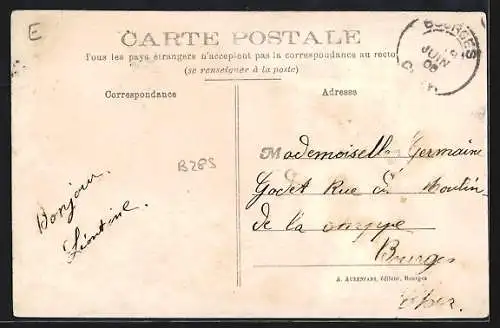 E
CARTE POSTALE
Tous les pays étrangers n'acceptent pas la correspondance au recto
(se renseigner à la poste)
Correspondance
Adresse
BOURGES
JUIN
08
B285
Bonjour.
Léontine.
Mademoiselle Germaine
Godet Rue du Moulin
de la
Bourges
A. AUXENFANS, éditeur, Bourges
Cher